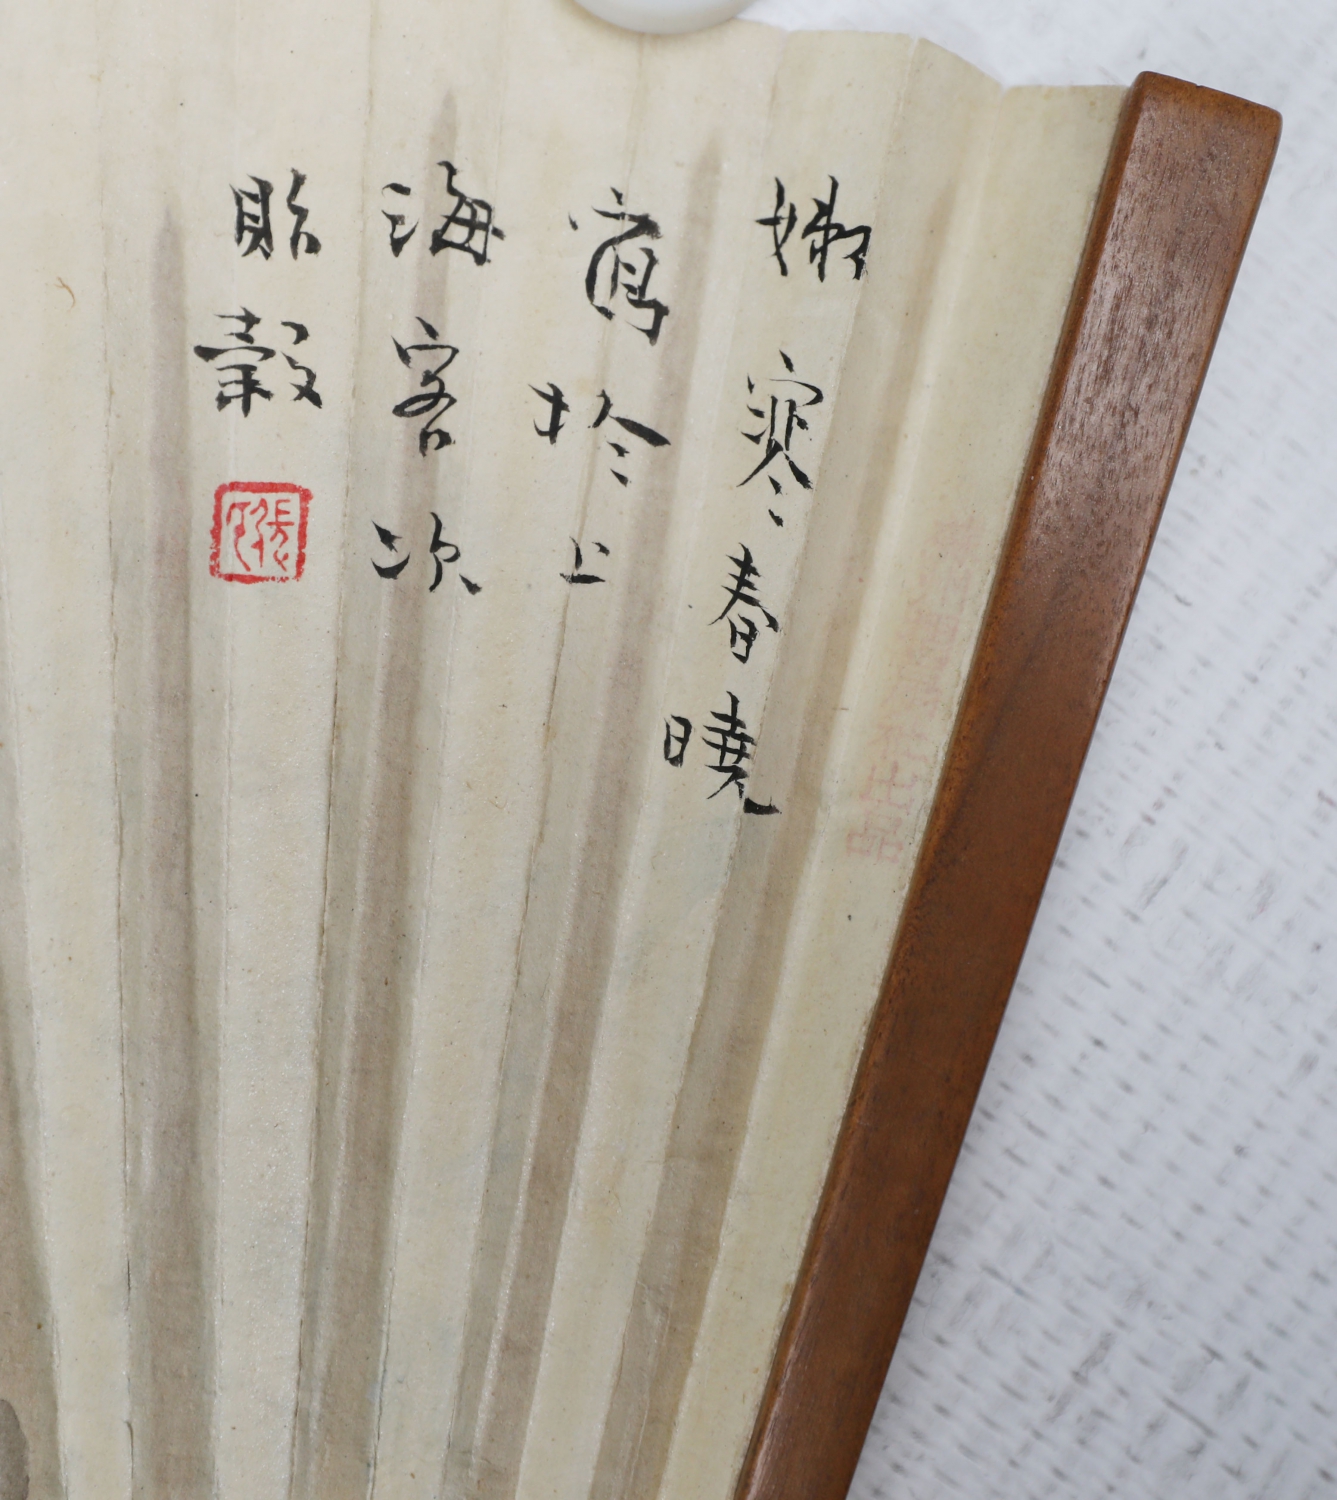 嫩寒春曉
寫於上
海客次
貽穀
張
出品